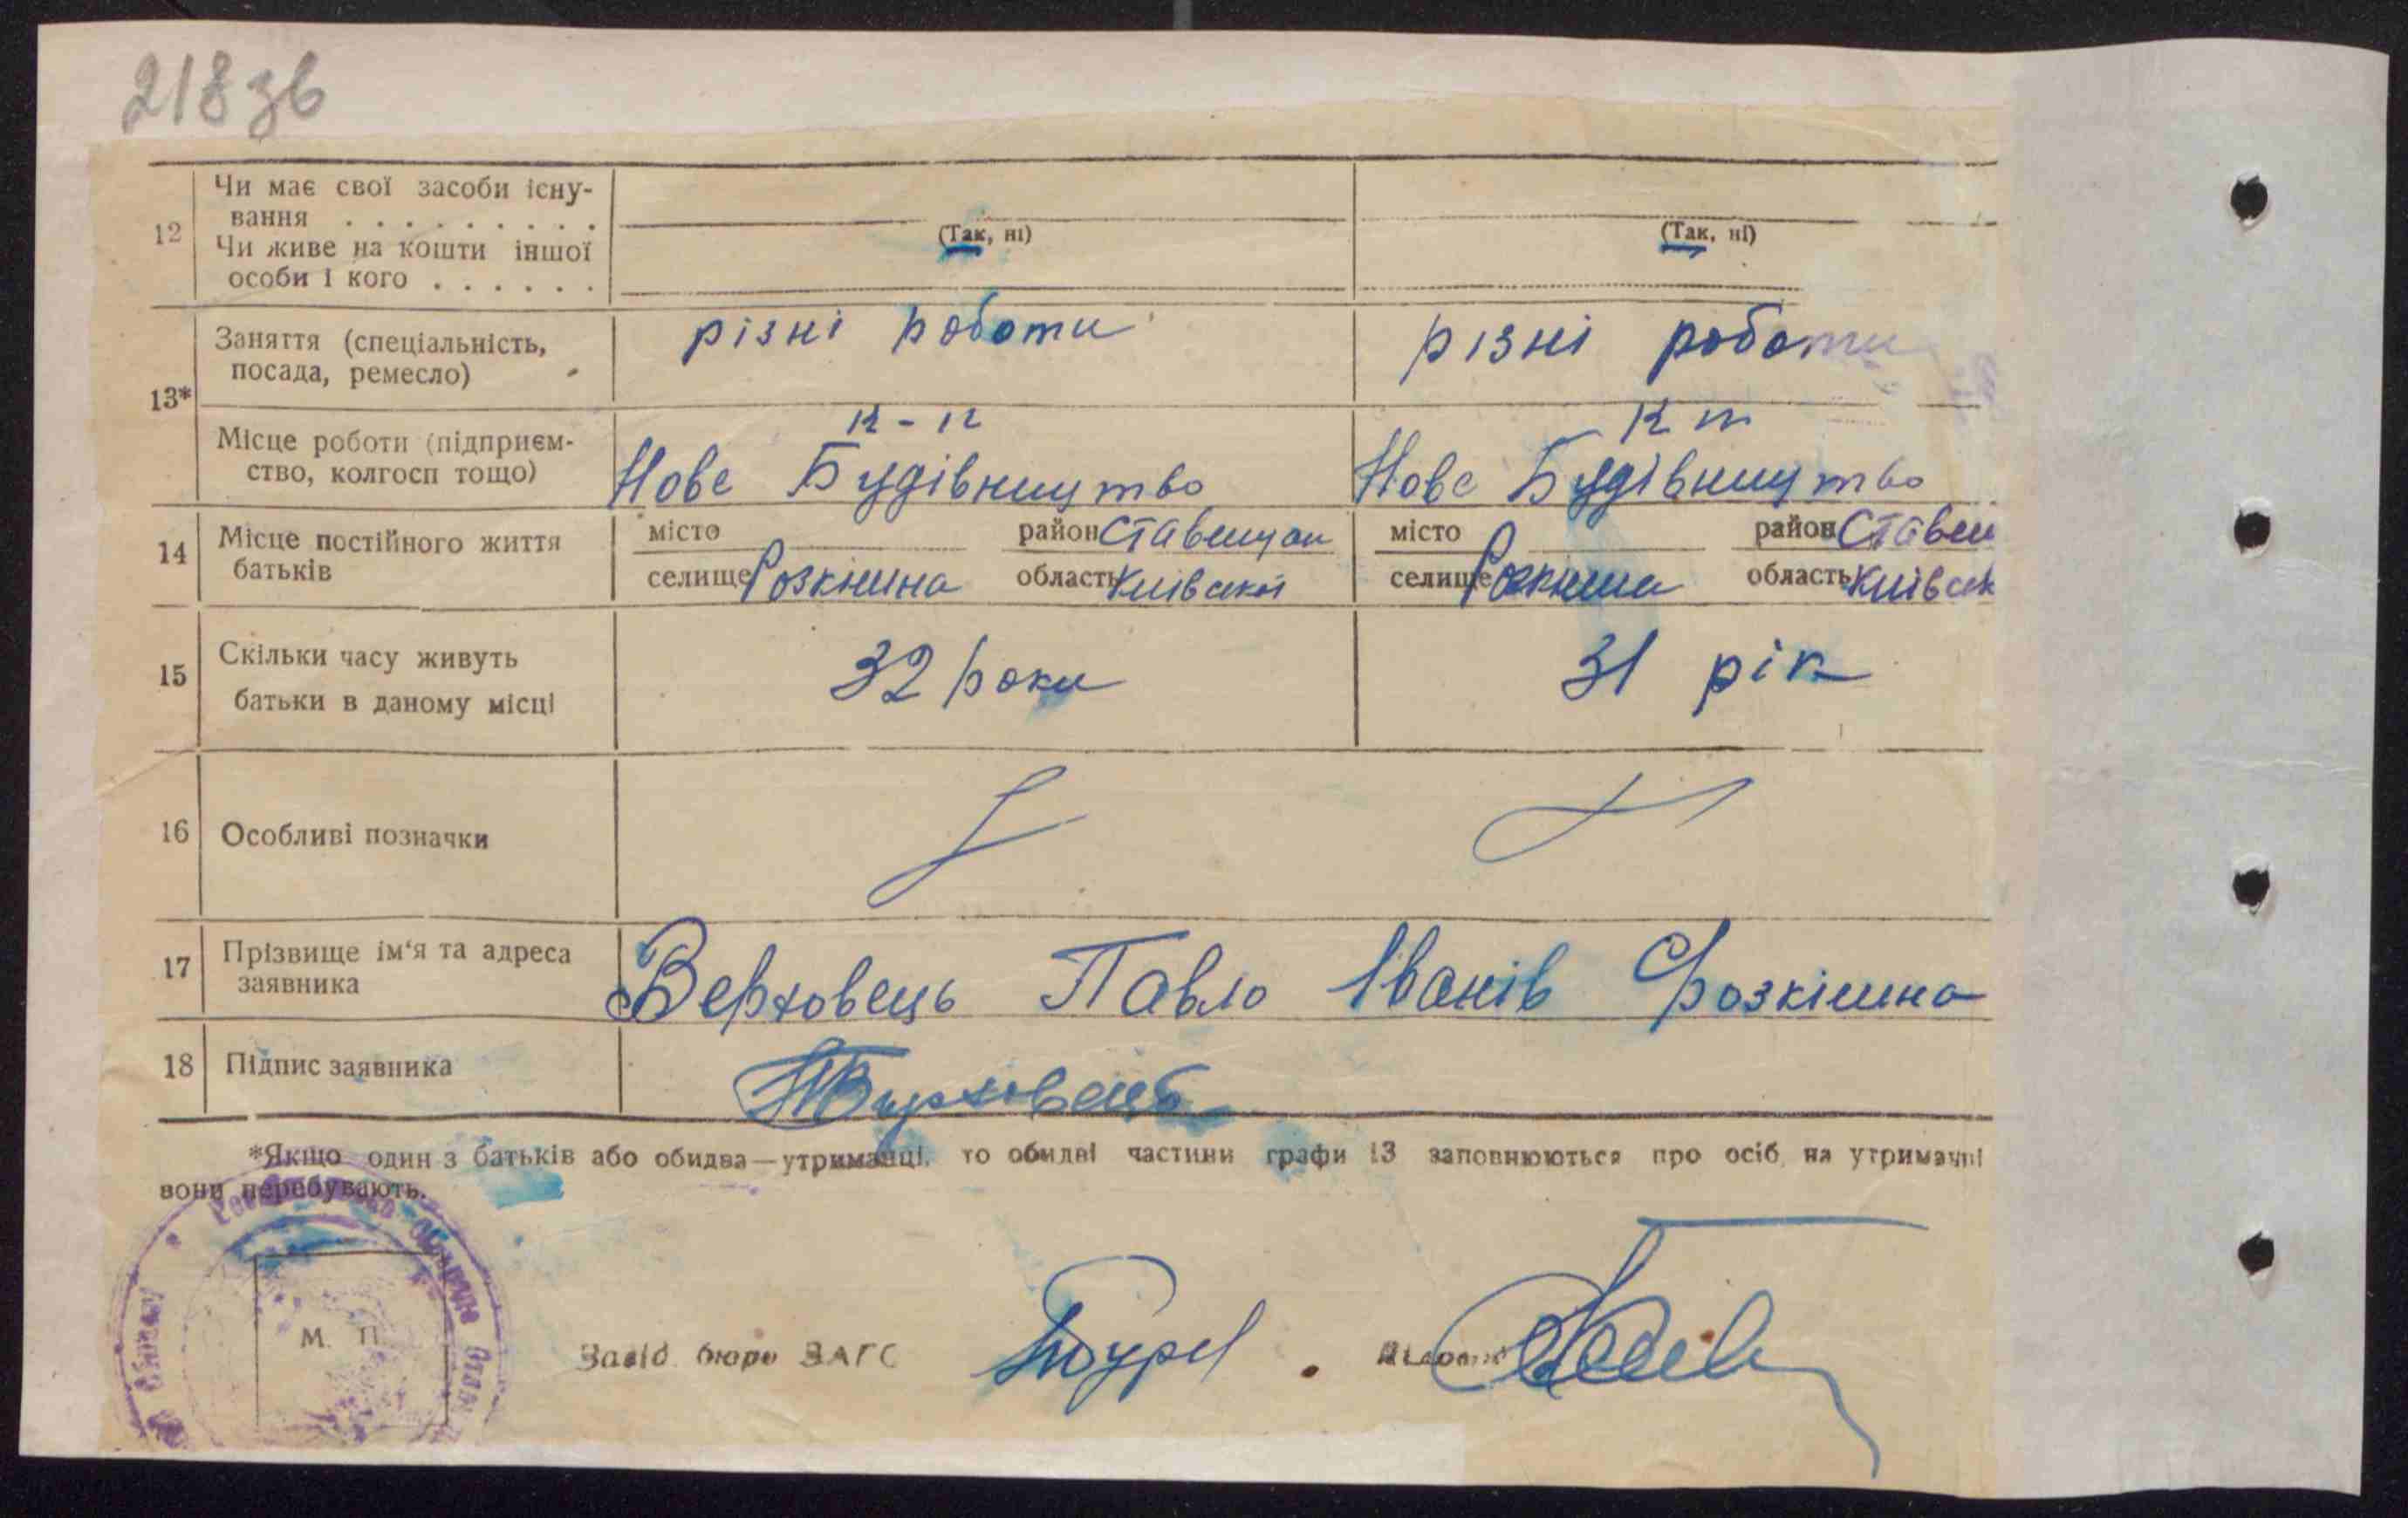 218зв
12 Чи має свої засоби існу-
вання . . . . . . . . .
(Так, ні) (Так, ні)
Чи живе на кошти іншої
особи і кого . . . . . .
13*
Заняття (спеціальність, різні роботи різні роботи
посада, ремесло)
Місце роботи (підприєм-
ство, колгосп тощо) Нове Будівництво Нове Будівництво
14 Місце постійного життя місто район Ставищан місто район Стави
батьків селище Розкішна область Київської селище область Київськ
15 Скільки часу живуть
32 роки 31 рік
батьки в даному місці
16 Особливі позначки
17 Прізвище ім'я та адреса Верховець Павло Іванів Розкішна
заявника
18 Підпис заявника
*Якщо один з батьків або обидва—утриманці, то обидві частини графи 13 заповнюються про осіб, на утриманні
вони перебувають.
М. П.
Завід. бюро ЗАГС